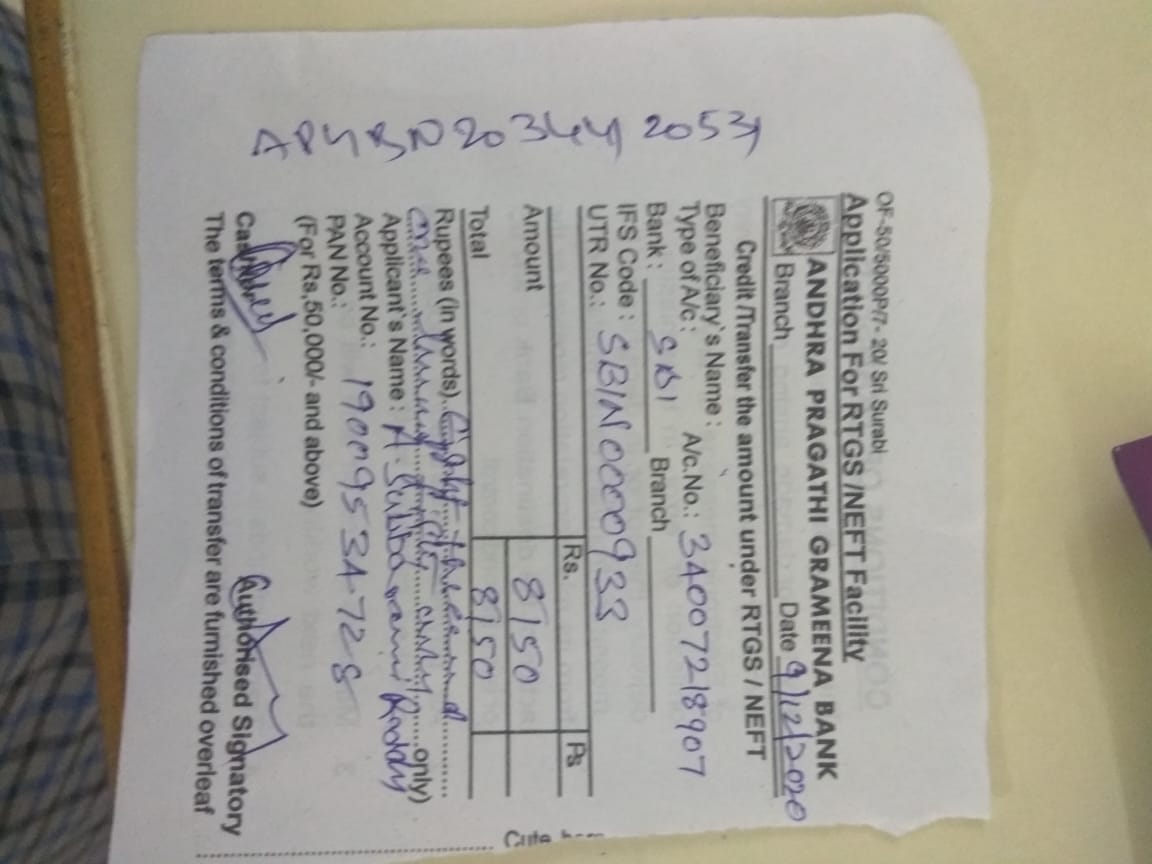 OF-50/5000P/7- 20/ Sri Surabi
Application For RTGS /NEFT Facility
ANDHRA PRAGATHI GRAMEENA BANK
Branch Date 9/12/2020
Credit /Transfer the amount under RTGS / NEFT
Beneficiary`s Name :
Type of A/c : A/c.No.: 34007218907
Bank : SBI Branch
IFS Code : SBIN0000933
UTR No.:
Rs. Ps
Amount 8150
Total 8150
Rupees (in words) Eight thousand
one hundred fifty only only)
Applicant`s Name : A. Subbarami Reddy
Account No.: 19009534728
PAN No.:
(For Rs,50,000/- and above)
Authorised Signatory
The terms & conditions of transfer are furnished overleaf